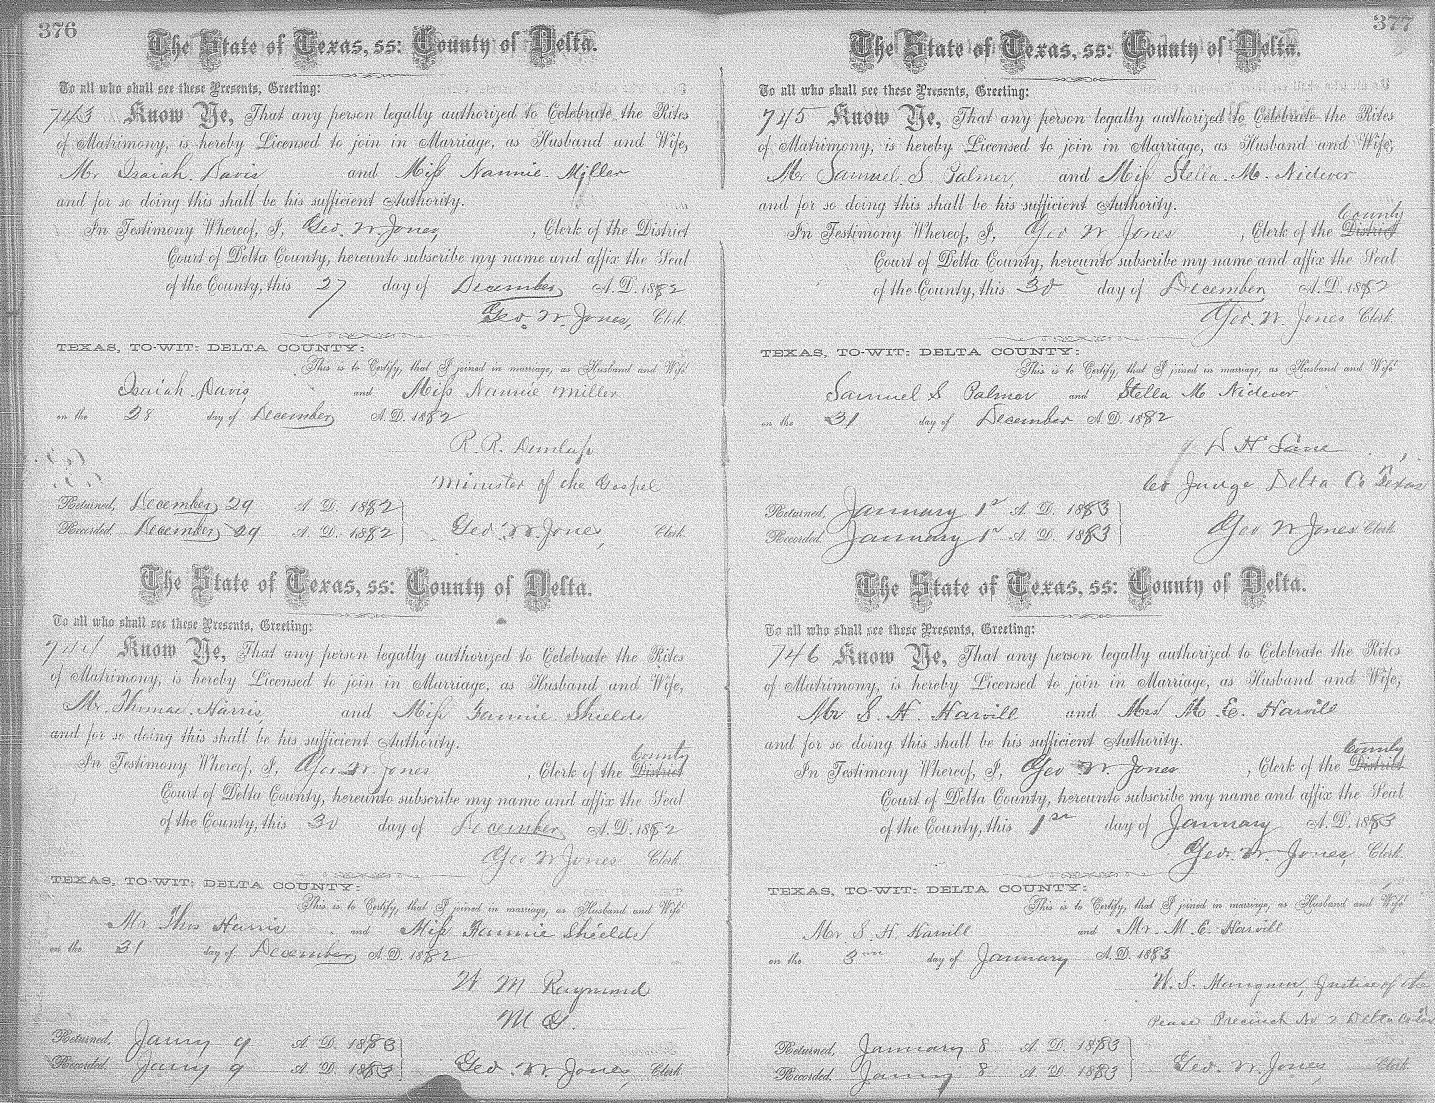 376
The State of Texas, ss: County of Delta.
To all who shall see these Presents, Greeting:
743 Know Ye, That any person legally authorized to Celebrate the Rites
of Matrimony, is hereby Licensed to join in Marriage, as Husband and Wife,
Mr Isaiah Davis and Miss Nannie Miller
and for so doing this shall be his sufficient Authority.
In Testimony Whereof, I, Geo. W Jones, Clerk of the District
Court of Delta County, hereunto subscribe my name and affix the Seal
of the County, this 27 day of December A.D. 1882
Geo. W. Jones, Clerk
TEXAS, TO-WIT: DELTA COUNTY:
This is to Certify, that I joined in marriage, as Husband and Wife
Isaiah Davis and Miss Nannie Miller
on the 28 day of December A.D. 1882
R. R. Dunlap
Minister of the Gospel
Returned, December 29 A. D. 1882
Recorded December 29 A. D. 1882 Geo. W. Jones, Clerk
The State of Texas, ss: County of Delta.
To all who shall see these Presents, Greeting:
744 Know Ye, That any person legally authorized to Celebrate the Rites
of Matrimony, is hereby Licensed to join in Marriage, as Husband and Wife,
Mr. Thomas Harris and Miss Fannie Shields
and for so doing this shall be his sufficient Authority.
County
In Testimony Whereof, I, Geo W. Jones, Clerk of the District
Court of Delta County, hereunto subscribe my name and affix the Seal
of the County, this 30 day of December A.D. 1882
Geo W Jones Clerk
TEXAS, TO-WIT: DELTA COUNTY:
This is to Certify, that I joined in marriage, as Husband and Wife
Mr Thos Harris and Miss Fannie Shields
on the 31 day of December A.D. 1882
W M Raymond
M G.
Returned, Janry 9 A. D. 1883
Recorded. Janry 9 A. D. 1883 Geo. W. Jones, Clerk
377
The State of Texas, ss: County of Delta.
To all who shall see these Presents, Greeting:
745 Know Ye, That any person legally authorized to Celebrate the Rites
of Matrimony, is hereby Licensed to join in Marriage, as Husband and Wife,
Mr Samuel S Palmer, and Miss Stella M. Nidever
and for so doing this shall be his sufficient Authority.
County
In Testimony Whereof, I, Geo W Jones, Clerk of the District
Court of Delta County, hereunto subscribe my name and affix the Seal
of the County, this 30 day of December A.D. 1882
Geo. W. Jones Clerk
TEXAS, TO-WIT: DELTA COUNTY:
This is to Certify, that I joined in marriage, as Husband and Wife
Samuel S Palmer and Stella M Nidever
on the 31 day of December A.D. 1882
D H Lane
Co Judge Delta Co Texas
Returned, January 1st A. D. 1883
Recorded January 1st A. D. 1883 Geo W Jones Clerk
The State of Texas, ss: County of Delta.
To all who shall see these Presents, Greeting:
746 Know Ye, That any person legally authorized to Celebrate the Rites
of Matrimony, is hereby Licensed to join in Marriage, as Husband and Wife,
Mr S. H. Harvill and Mrs M. E. Harvill
and for so doing this shall be his sufficient Authority.
County
In Testimony Whereof, I, Geo W. Jones, Clerk of the District
Court of Delta County, hereunto subscribe my name and affix the Seal
of the County, this 1st day of January A.D. 1883
Geo. W. Jones, Clerk
TEXAS, TO-WIT: DELTA COUNTY:
This is to Certify, that I joined in marriage, as Husband and Wife
Mr S. H Harvill and Mr. M. E. Harvill
on the 3 day of January A.D. 1883
W. S. Justice of the
Peace Precinct No 2 Delta Co
Returned, January 8 A. D. 1883
Recorded. Janry 8 A. D. 1883 Geo. W. Jones, Clerk